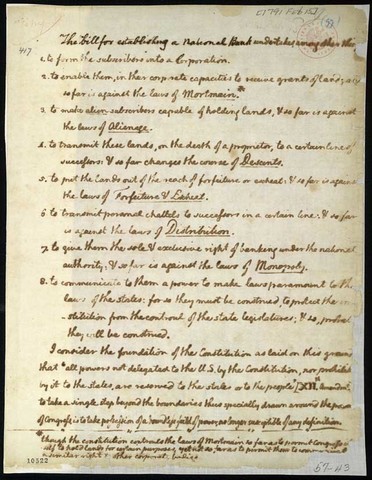 [1791 Feb 15]
417
The bill for establishing a National Bank undertakes, among other things
1. to form the subscribers into a Corporation.
2. to enable them, in their corporate capacities to receive grants of land; and
so far is against the laws of Mortmain.*
3. to make alien subscribers capable of holding lands, & so far is against
the laws of Alienage.
4. to transmit these lands, on the death of a proprietor, to a certain line of
successors: & so far changes the course of Descents.
5. to put the lands out of the reach of forfeiture or escheat: & so far is against
the laws of Forfeiture & Escheat.
6. to transmit personal chattels to successors in a certain line: & so far
is against the laws of Distribution.
7. to give them the sole & exclusive right of banking under the national
authority; & so far is against the laws of Monopoly.
8. to communicate to them a power to make laws paramount to the
laws of the states: for so they must be construed, to protect the in-
-stitution from the controul of the state legislatures; & so, probably
they will be construed.
I consider the foundation of the Constitution as laid on this ground
that "all powers not delegated to the U.S. by the Constitution, nor prohibited
by it to the states, are reserved to the states or to the people" [XII. amendmt.]
to take a single step beyond the boundaries thus specially drawn around the powers
of Congress, is to take possession of a boundless field of power, no longer susceptible of any definition.
* though the constitution controuls the laws of Mortmain so far as to permit Congress
itself to hold lands for certain purposes, yet not so far as to permit them to communicate
a similar right to other corporate bodies.
10522
57-43